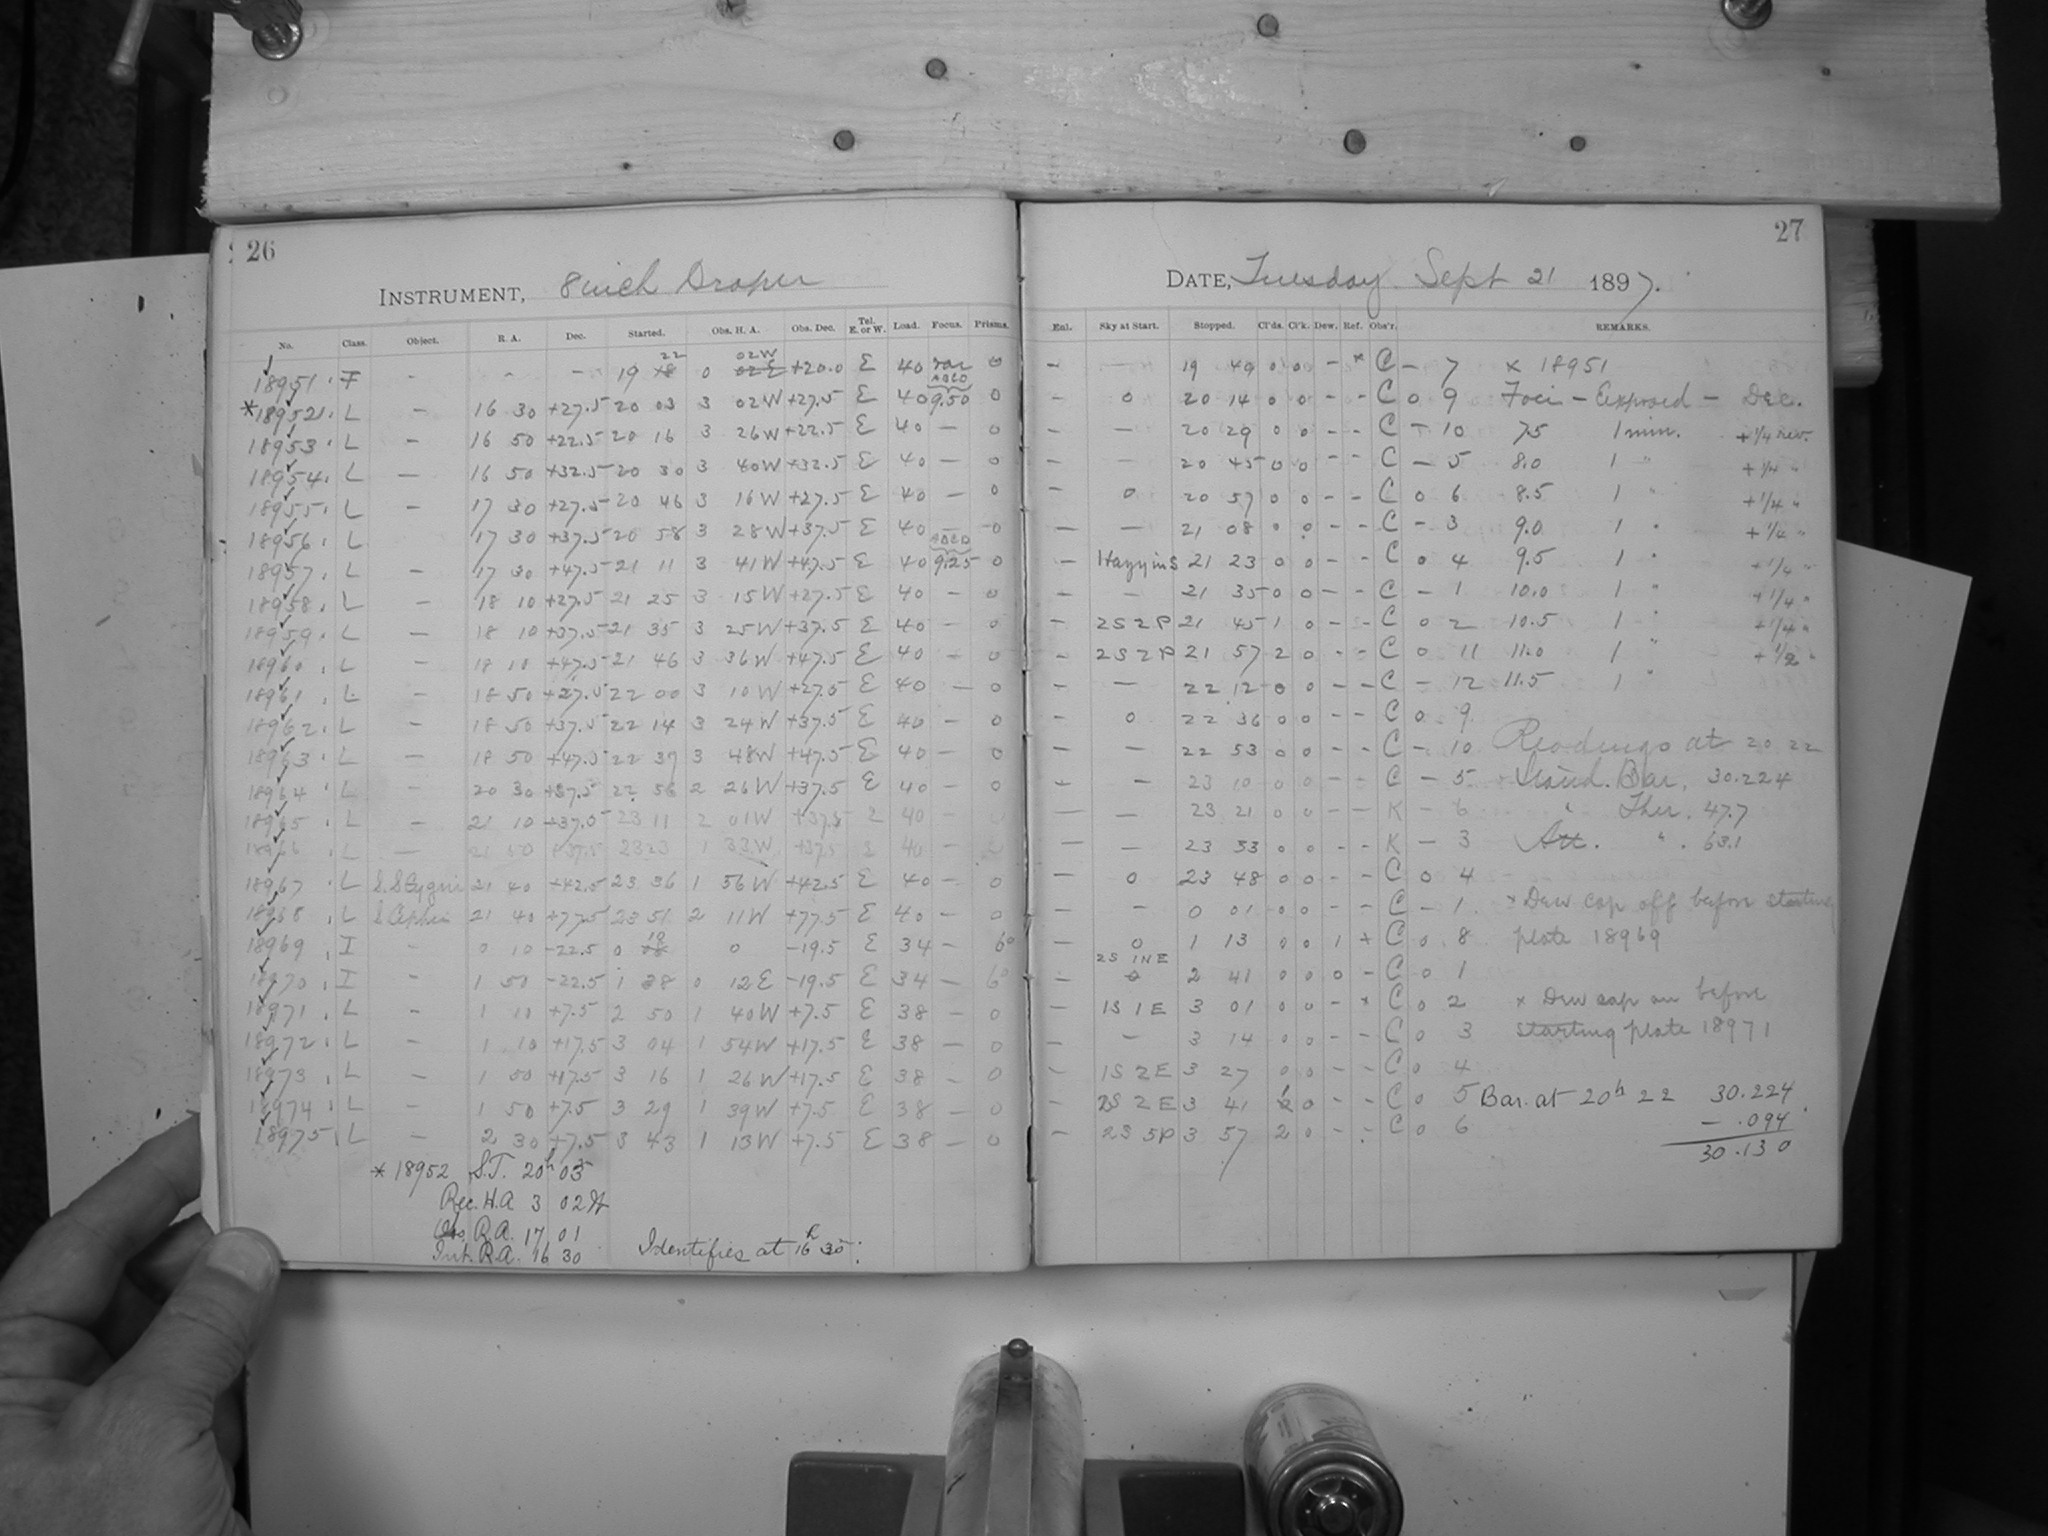 26
INSTRUMENT, 8 inch Draper
No. Class. Object. R. A. Dec. Started. Obs. H. A. Obs. Dec. Tel. E. or W. Load. Focus. Prisms.
18951 F - - - 19 22 0 02W +20.0 E 40 var 0
*18952 L - 16 30 +27.5 20 03 3 02W +27.5 E 40 9.50 0
18953 L - 16 50 +22.5 20 16 3 26W +22.5 E 40 - 0
18954 L - 16 50 +32.5 20 30 3 40W +32.5 E 40 - 0
18955 L - 17 30 +27.5 20 46 3 16W +27.5 E 40 - 0
18956 L 17 30 +37.5 20 58 3 28W +37.5 E 40 - 0
18957 L - 17 30 +47.5 21 11 3 41W +47.5 E 40 9.25 0
18958 L - 18 10 +27.5 21 25 3 15W +27.5 E 40 - 0
18959 L - 18 10 +37.5 21 35 3 25W +37.5 E 40 - 0
18960 L - 18 10 +47.5 21 46 3 36W +47.5 E 40 - 0
18961 L - 18 50 +27.5 22 00 3 10W +27.5 E 40 - 0
18962 L - 18 50 +37.5 22 14 3 24W +37.5 E 40 - 0
18963 L - 18 50 +47.5 22 37 3 48W +47.5 E 40 - 0
18964 L - 20 30 +37.5 22 56 2 26W +37.5 E 40 - 0
18965 L - 21 10 +37.5 23 11 2 01W +37.5 E 40 -
18966 L - 21 50 +37.5 23 23 1 33W +37.5 E 40 -
18967 L S.S Cygni 21 40 +42.5 23 36 1 56W +42.5 E 40 - 0
18968 L S Cephei 21 40 +77.5 23 51 2 11W +77.5 E 40 - 0
18969 I - 0 10 -22.5 0 10 0 -19.5 E 34 - 6°
18970 I - 1 50 -22.5 1 38 0 12E -19.5 E 34 - 6°
18971 L - 1 10 +7.5 2 50 1 40W +7.5 E 38 - 0
18972 L - 1 10 +17.5 3 04 1 54W +17.5 E 38 - 0
18973 L - 1 50 +17.5 3 16 1 26W +17.5 E 38 - 0
18974 L - 1 50 +7.5 3 29 1 39W +7.5 E 38 - 0
18975 L - 2 30 +7.5 3 43 1 13W +7.5 E 38 - 0
* 18952 S.T. 20h 03
Rec. H.A 3 02W
Obs. R.A. 17 01
Int. R.A. 16 30 Identifies at 16h 30
27
DATE, Tuesday Sept 21 1897.
Enl. Sky at Start. Stopped. Cl'ds. Cl'k. Dew. Ref. Obs'r. REMARKS.
- - 19 40 0 0 - * C - 7 x 18951
- 0 20 14 0 0 - - C 0 9 Foci - Exposed - Dec.
- - 20 29 0 0 - - C - 10 7.5 1 min. +1/4 rev.
- - 20 45 0 0 - - C - 5 8.0 1 " +1/4 "
- 0 20 57 0 0 - - C 0 6 8.5 1 " +1/4 "
- - 21 08 0 0 - - C - 3 9.0 1 " +1/4 "
- Haggins 21 23 0 0 - - C 0 4 9.5 1 " +1/4 "
- - 21 35 0 0 - - C - 1 10.0 1 " +1/4 "
- 2S 2P 21 45 1 0 - - C 0 2 10.5 1 " +1/4 "
- 2S 2P 21 57 2 0 - - C 0 11 11.0 1 " +1/2 "
- - 22 12 0 0 - - C - 12 11.5 1 "
- 0 22 36 0 0 - - C 0 9
- - 22 53 0 0 - - C - 10 Readings at 20 22
- - 23 10 0 0 - - C - 5 Stand. Bar. 30.224
- - 23 21 0 0 - - K - 6 " Ther. 47.7
- - 23 33 0 0 - - K - 3 Att. " 63.1
- 0 23 48 0 0 - - C 0 4
- - 0 01 0 0 - - C - 1 x Dew cap off before starting
- 0 1 13 0 0 1 + C 0 8 plate 18969
- 2S 1NE 2 41 0 0 0 - C 0 1
- 1S 1E 3 01 0 0 - * C 0 2 x Dew cap on before
- - 3 14 0 0 - - C 0 3 starting plate 18971
- 1S 2E 3 27 0 0 - - C 0 4
- 2S 2E 3 41 1 0 - - C 0 5 Bar. at 20h 22 30.224
- 2S 5P 3 57 2 0 - - C 0 6 - .094
30.130